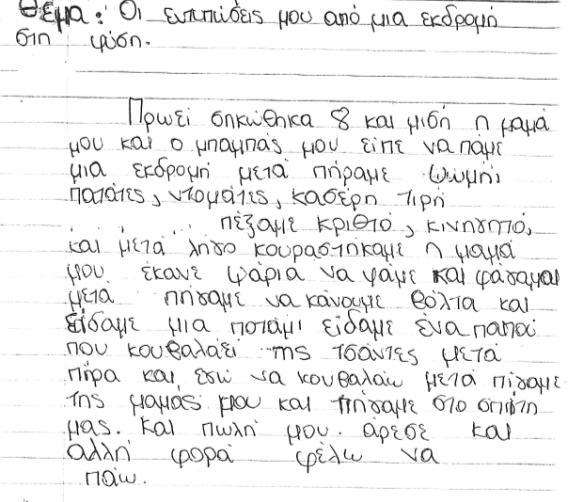 Θέμα: Οι εντπώσεις μου από μια εκδρομή
στη φύση.
Πρωεί σηκώθηκα 8 και μισή η μαμά
μου και ο μπαμπάς μου είπε να πάμε
μια εκδρομή μετά πήραμε ψωμή,
πατάτες, ντομάτες, κασέρη τιρή
πέζαμε κριθτό, κινηγητό,
και μετά λήγο κουραστήκαμε η μαμά
μου έκανε ψάρια να φάμε και φάγαμαι
μετά πήγαμε να κάνουμε βόλτα και
είδαμε μια ποτάμι είδαμε ένα παπού
που κουβαλάει της τσάντες μετά
πίρα και εγώ να κουβαλάω μετά πίγαμε
της μαμάς μου και πήγαμε στο σπίτη
μας. Και πωλή μου. άρεσε και
αλλή φορά φέλω να
πάω.